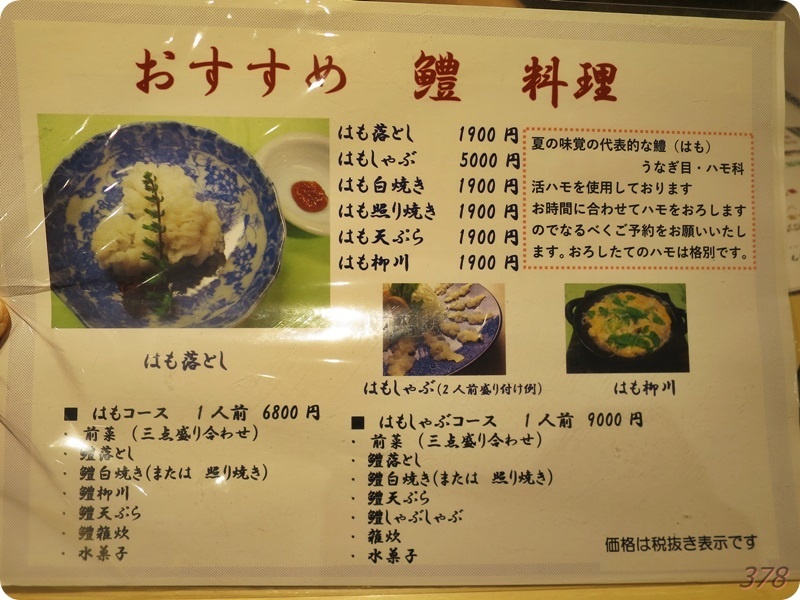 おすすめ 鱧 料理
はも落とし 1900 円
はもしゃぶ 5000 円
はも白焼き 1900 円
はも照り焼き 1900 円
はも天ぷら 1900 円
はも柳川 1900 円
夏の味覚の代表的な鱧(はも)
うなぎ目・ハモ科
活ハモを使用しております
お時間に合わせてハモをおろします
のでなるべくご予約をお願いいたし
ます。おろしたてのハモは格別です。
はも落とし
はもしゃぶ(2人前盛り付け例)
はも柳川
■ はもコース 1人前 6800 円
・ 前菜 (三点盛り合わせ)
・ 鱧落とし
・ 鱧白焼き(または 照り焼き)
・ 鱧柳川
・ 鱧天ぷら
・ 鱧雑炊
・ 水菓子
■ はもしゃぶコース 1人前 9000 円
・ 前菜 (三点盛り合わせ)
・ 鱧落とし
・ 鱧白焼き(または 照り焼き)
・ 鱧天ぷら
・ 鱧しゃぶしゃぶ
・ 雑炊
・ 水菓子
価格は税抜き表示です
378